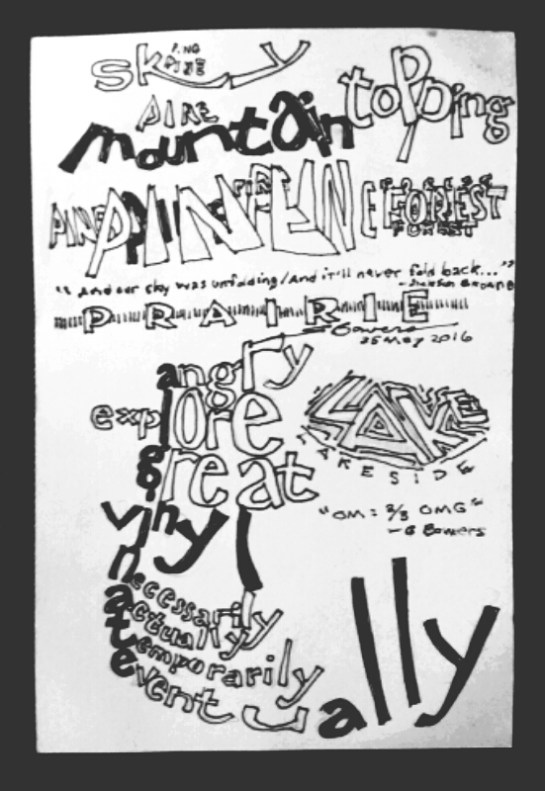 sky
PINE
PINE
topping
PINE
mountain
PINE PINE PINE PINE FOREST
FOREST
"And our sky was unfolding/And it'll never fold back..."
- Jackson Browne
PRAIRIE
S Bowers
25 May 2016
angry
explore
LAKE
great
LAKESIDE
why
"OM = 2/3 OMG"
- G Bowers
necessarily
actually
temporarily
eventually